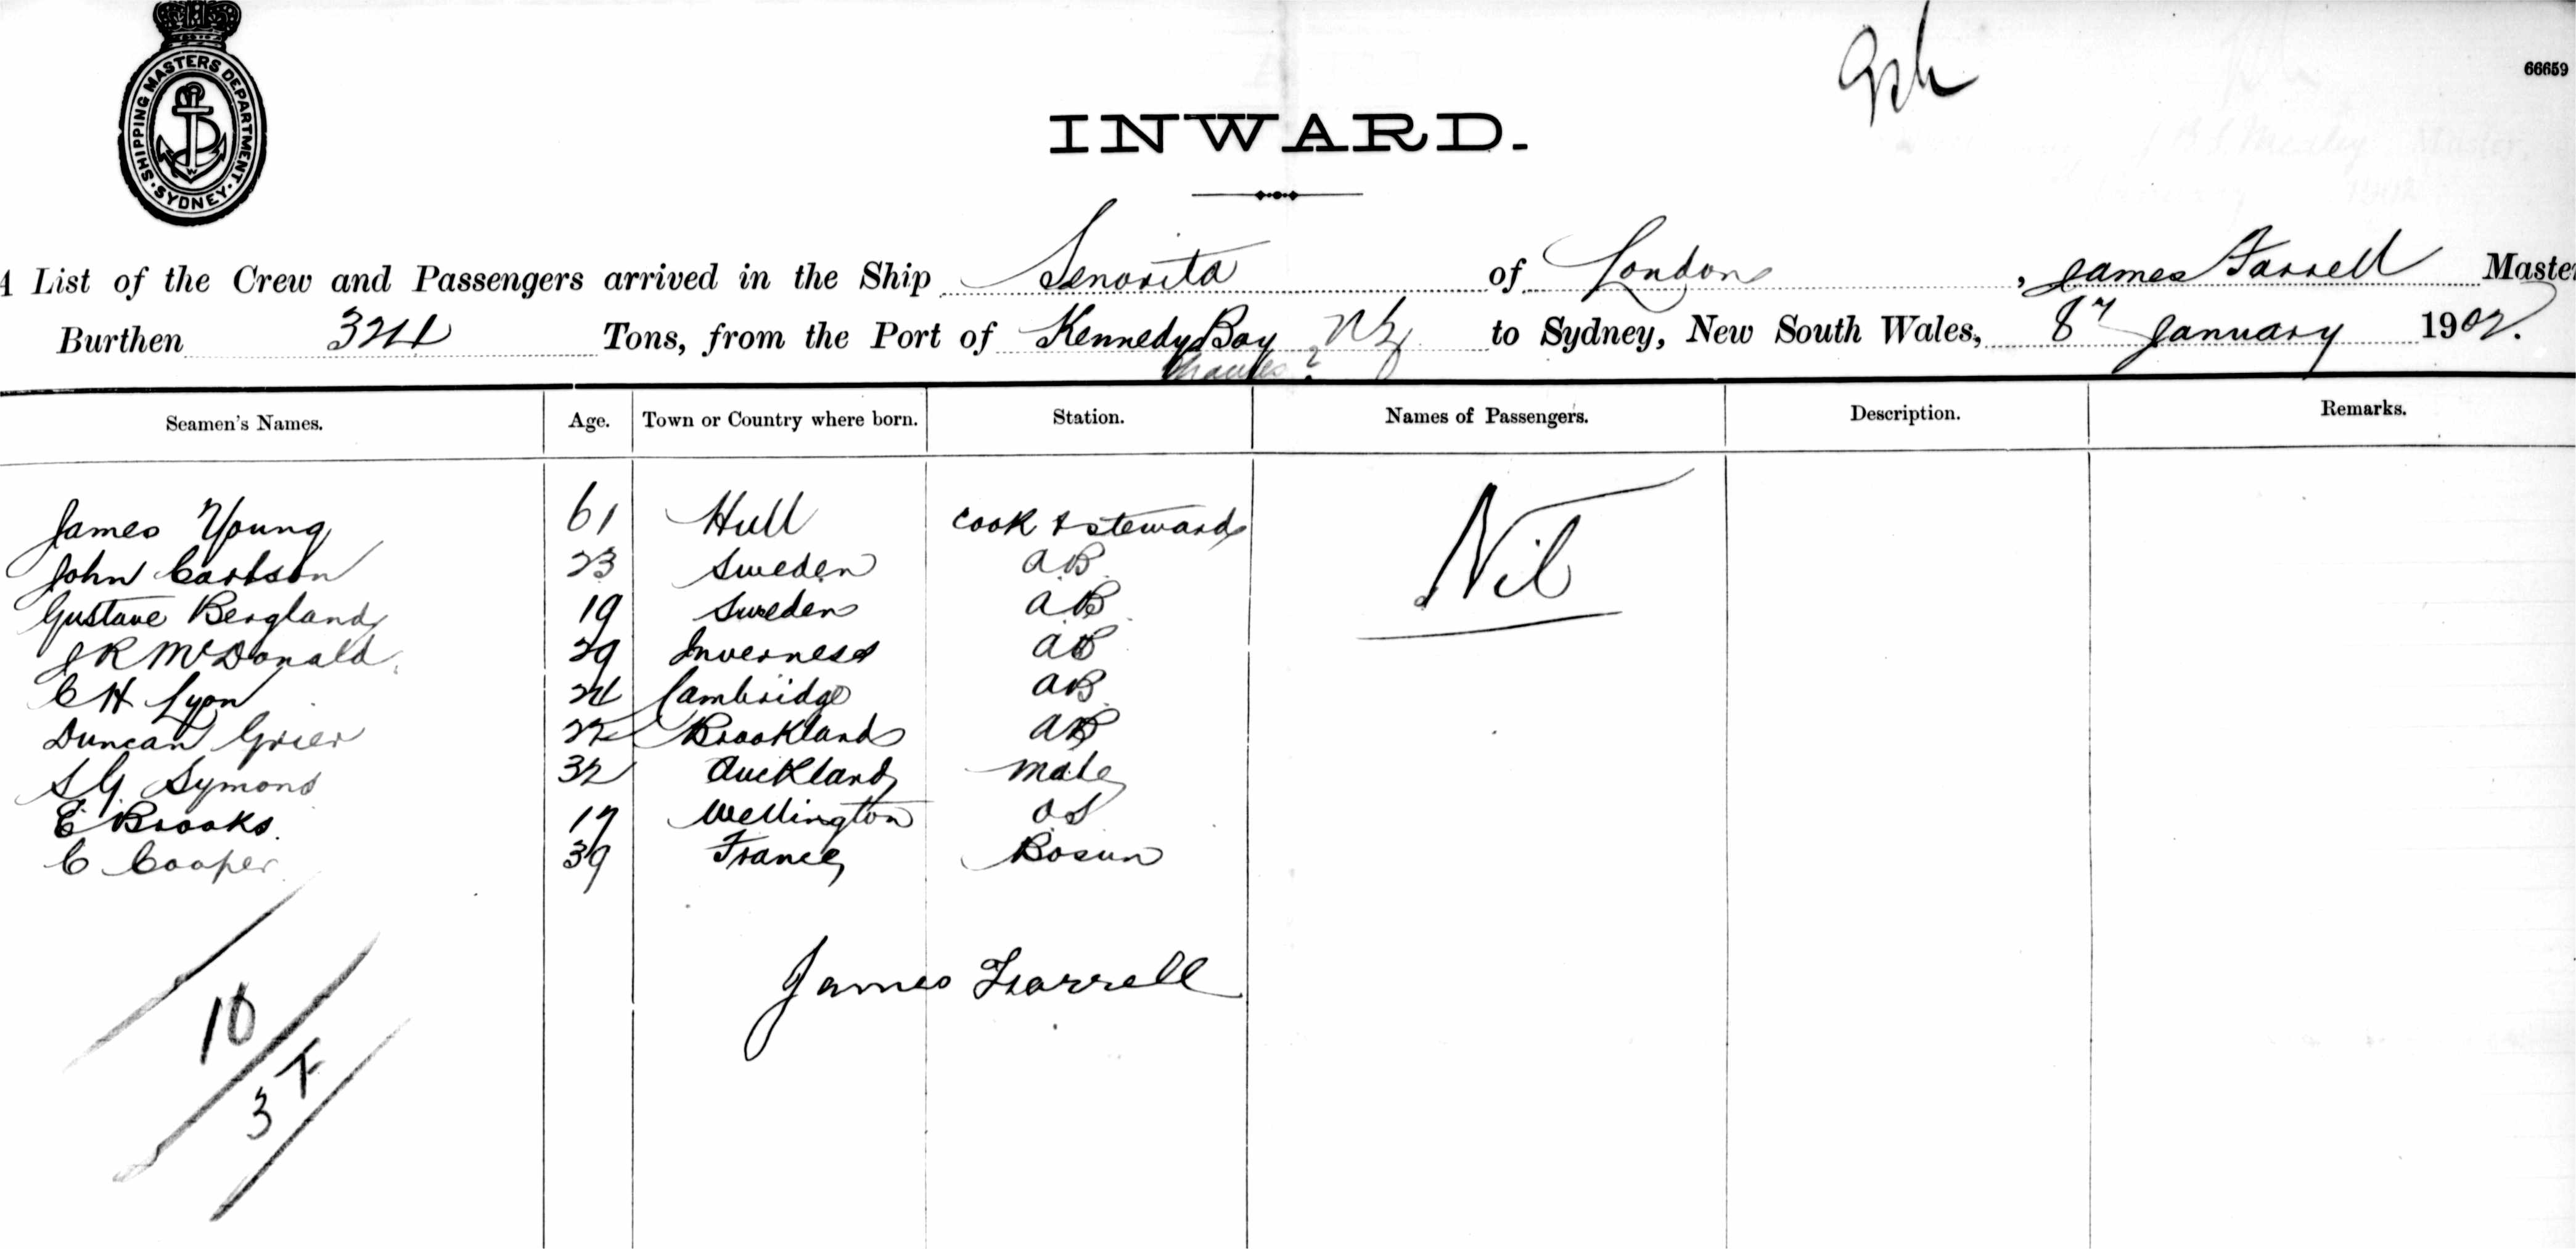 SHIPPING MASTERS DEPARTMENT · SYDNEY ·
66659
INWARD.
A List of the Crew and Passengers arrived in the Ship Senorita of London, James Farrell Master
Burthen 324 Tons, from the Port of Kennedy Bay NZ to Sydney, New South Wales, 8th January 1902.
Seamen's Names. Age. Town or Country where born. Station. Names of Passengers. Description. Remarks.
James Young 61 Hull cook & steward Nil
John Carlson 23 Sweden AB
Gustave Bergland 19 Sweden AB
J R McDonald 29 Inverness AB
C H Lyon 24 Cambridge AB
Duncan Grier 22 Brookland AB
S G Symons 32 Auckland Mate
E Brooks 17 Wellington OS
C Cooper 39 France Bosun
James Farrell
10
3 F